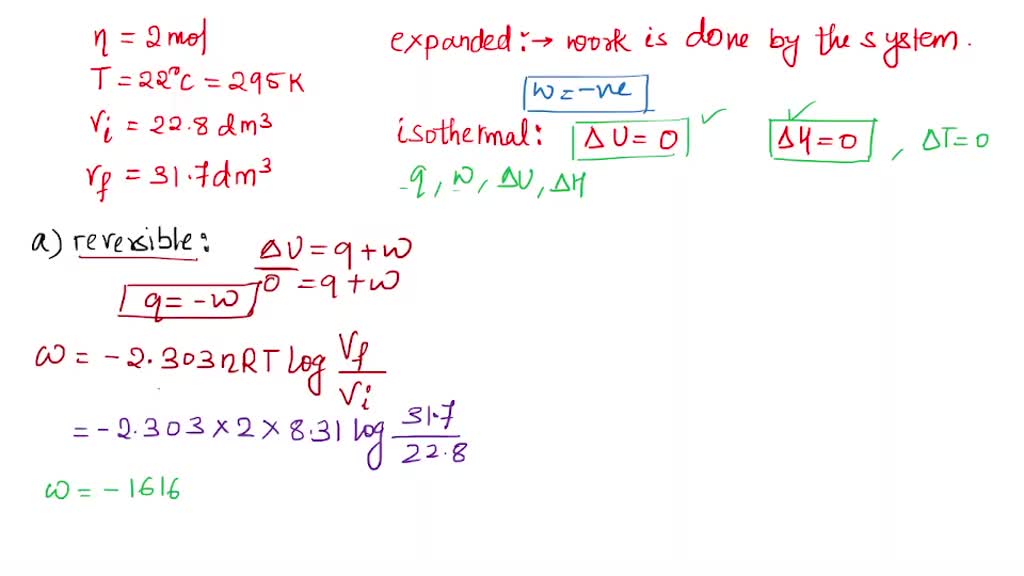 η = 2 mol
T = 22°C = 295K
Vi = 22.8 dm³
Vf = 31.7 dm³
expanded :→ work is done by the system.
w = -ve
isothermal: ΔU = 0 ✓ ΔH = 0 ✓ , ΔT = 0
q, w, ΔU, ΔH
a) reversible:
ΔU = q + w
0 = q + w
q = -w
ω = -2.303 nRT log Vf/Vi
= -2.303 × 2 × 8.31 log 31.7/22.8
ω = -1616